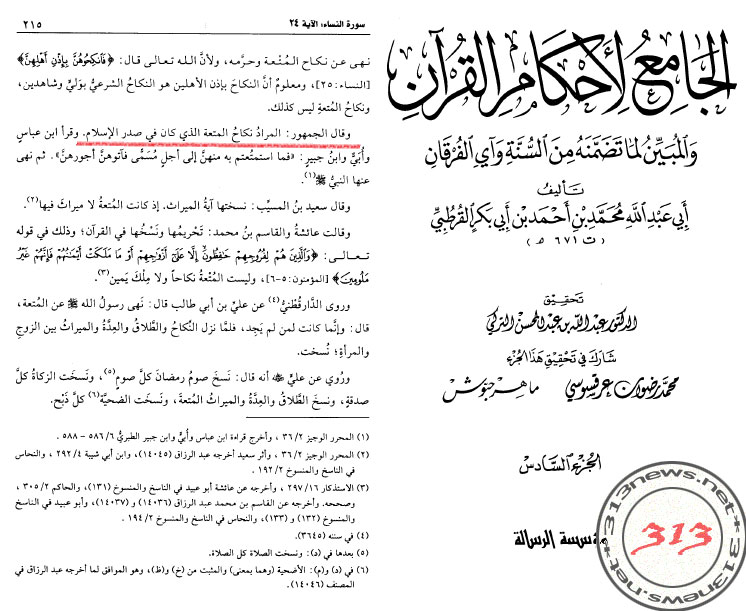 الجامع لأحكام القرآن
والمبين لما تضمنه من السنة وآي الفرقان
تأليف
أبي عبد الله محمد بن أحمد بن أبي بكر القرطبي
(ت ٦٧١ هـ)
تحقيق
الدكتور عبد الله بن عبد المحسن التركي
شارك في تحقيق هذا الجزء
محمد رضوان عرقسوسي ماهر حبوش
الجزء السادس
مؤسسة الرسالة
313news.net
313
313news.net
سورة النساء: الآية ٢٤
٢١٥
نهى عن نكاح المُتْعة وحرَّمه، ولأنَّ الله تعالى قال: ﴿فَانكِحُوهُنَّ بِإِذْنِ أَهْلِهِنَّ﴾
[النساء: ٢٥]، ومعلومٌ أنَّ النكاحَ بإذن الأهلين هو النكاح الشرعيُّ بوَليٍّ وشاهدين،
ونكاح المُتعةِ ليس كذلك.
وقال الجمهور: المرادُ نكاحُ المتعة الذي كان في صدر الإسلام. وقرأ ابن عباسٍ
وأُبَيٌّ وابنُ جبيرٍ: «فما استمتعتم به منهنَّ إلى أجلٍ مُسَمًّى فآتوهنَّ أجورهنَّ». ثم نهى
عنها النبيُّ ﷺ(١).
وقال سعيد بنُ المسيِّب: نسختها آيةُ الميراث، إذ كانت المُتعةُ لا ميراثَ فيها(٢).
وقالت عائشةُ والقاسم بنُ محمد: تَحْريمُها ونَسْخُها في القرآن؛ وذلك في قوله
تعالى: ﴿وَالَّذِينَ هُمْ لِفُرُوجِهِمْ حَافِظُونَ إِلَّا عَلَىٰ أَزْوَاجِهِمْ أَوْ مَا مَلَكَتْ أَيْمَانُهُمْ فَإِنَّهُمْ غَيْرُ
مَلُومِينَ﴾ [المؤمنون: ٥-٦]، وليست المُتعةُ نكاحاً ولا مِلْكَ يَمين(٣).
وروى الدَّارقُطْنيُّ(٤) عن عليِّ بن أبي طالب قال: نَهى رسولُ الله ﷺ عن المتعة،
قال: وإنَّما كانت لمن لم يَجِد، فلمَّا نزل النِّكاحُ والطَّلاقُ والعِدَّةُ والميراثُ بين الزوج
والمرأةِ؛ نُسخت.
ورُوي عن عليٍّ ﷺ أنه قال: نَسخَ صومُ رمضانَ كلَّ صومٍ(٥)، ونَسَخت الزكاةُ كلَّ
صدقةٍ، ونسخَ الطَّلاقُ والعِدَّةُ والميراثُ المتعةَ، ونَسَخت الضحيَّةُ(٦) كلَّ ذَبْح.
(١) المحرر الوجيز ٢/ ٣٦ ، وأخرج قراءة ابن عباس وأُبيٍّ وابن جبير الطبريُّ ٦/ ٥٨٦ - ٥٨٨ .
(٢) المحرر الوجيز ٢/ ٣٦ ، وأثر سعيد أخرجه عبد الرزاق (١٤٠٤٥)، وابن أبي شيبة ٤/ ٢٩٢ ، والنحاس
في الناسخ والمنسوخ ٢/ ١٩٢ .
(٣) الاستذكار ١٦/ ٢٩٧ ، وأخرجه عن عائشة أبو عبيد في الناسخ والمنسوخ (١٣١)، والحاكم ٢/ ٣٠٥ ،
وصححه. وأخرجه عن القاسم بن محمد عبد الرزاق (١٤٠٣٦) و(١٤٠٣٧)، وأبو عبيد في الناسخ
والمنسوخ (١٣٢) و(١٣٣)، والنحاس في الناسخ والمنسوخ ٢/ ١٩٤ .
(٤) في سننه (٣٦٤٥).
(٥) بعدها في (د): ونسخت الصلاة كل الصلاة.
(٦) في (د) و(م): الأضحية (وهما بمعنى) والمثبت من (خ) و(ظ)، وهو الموافق لما أخرجه عبد الرزاق في
المصنف (١٤٠٤٦).